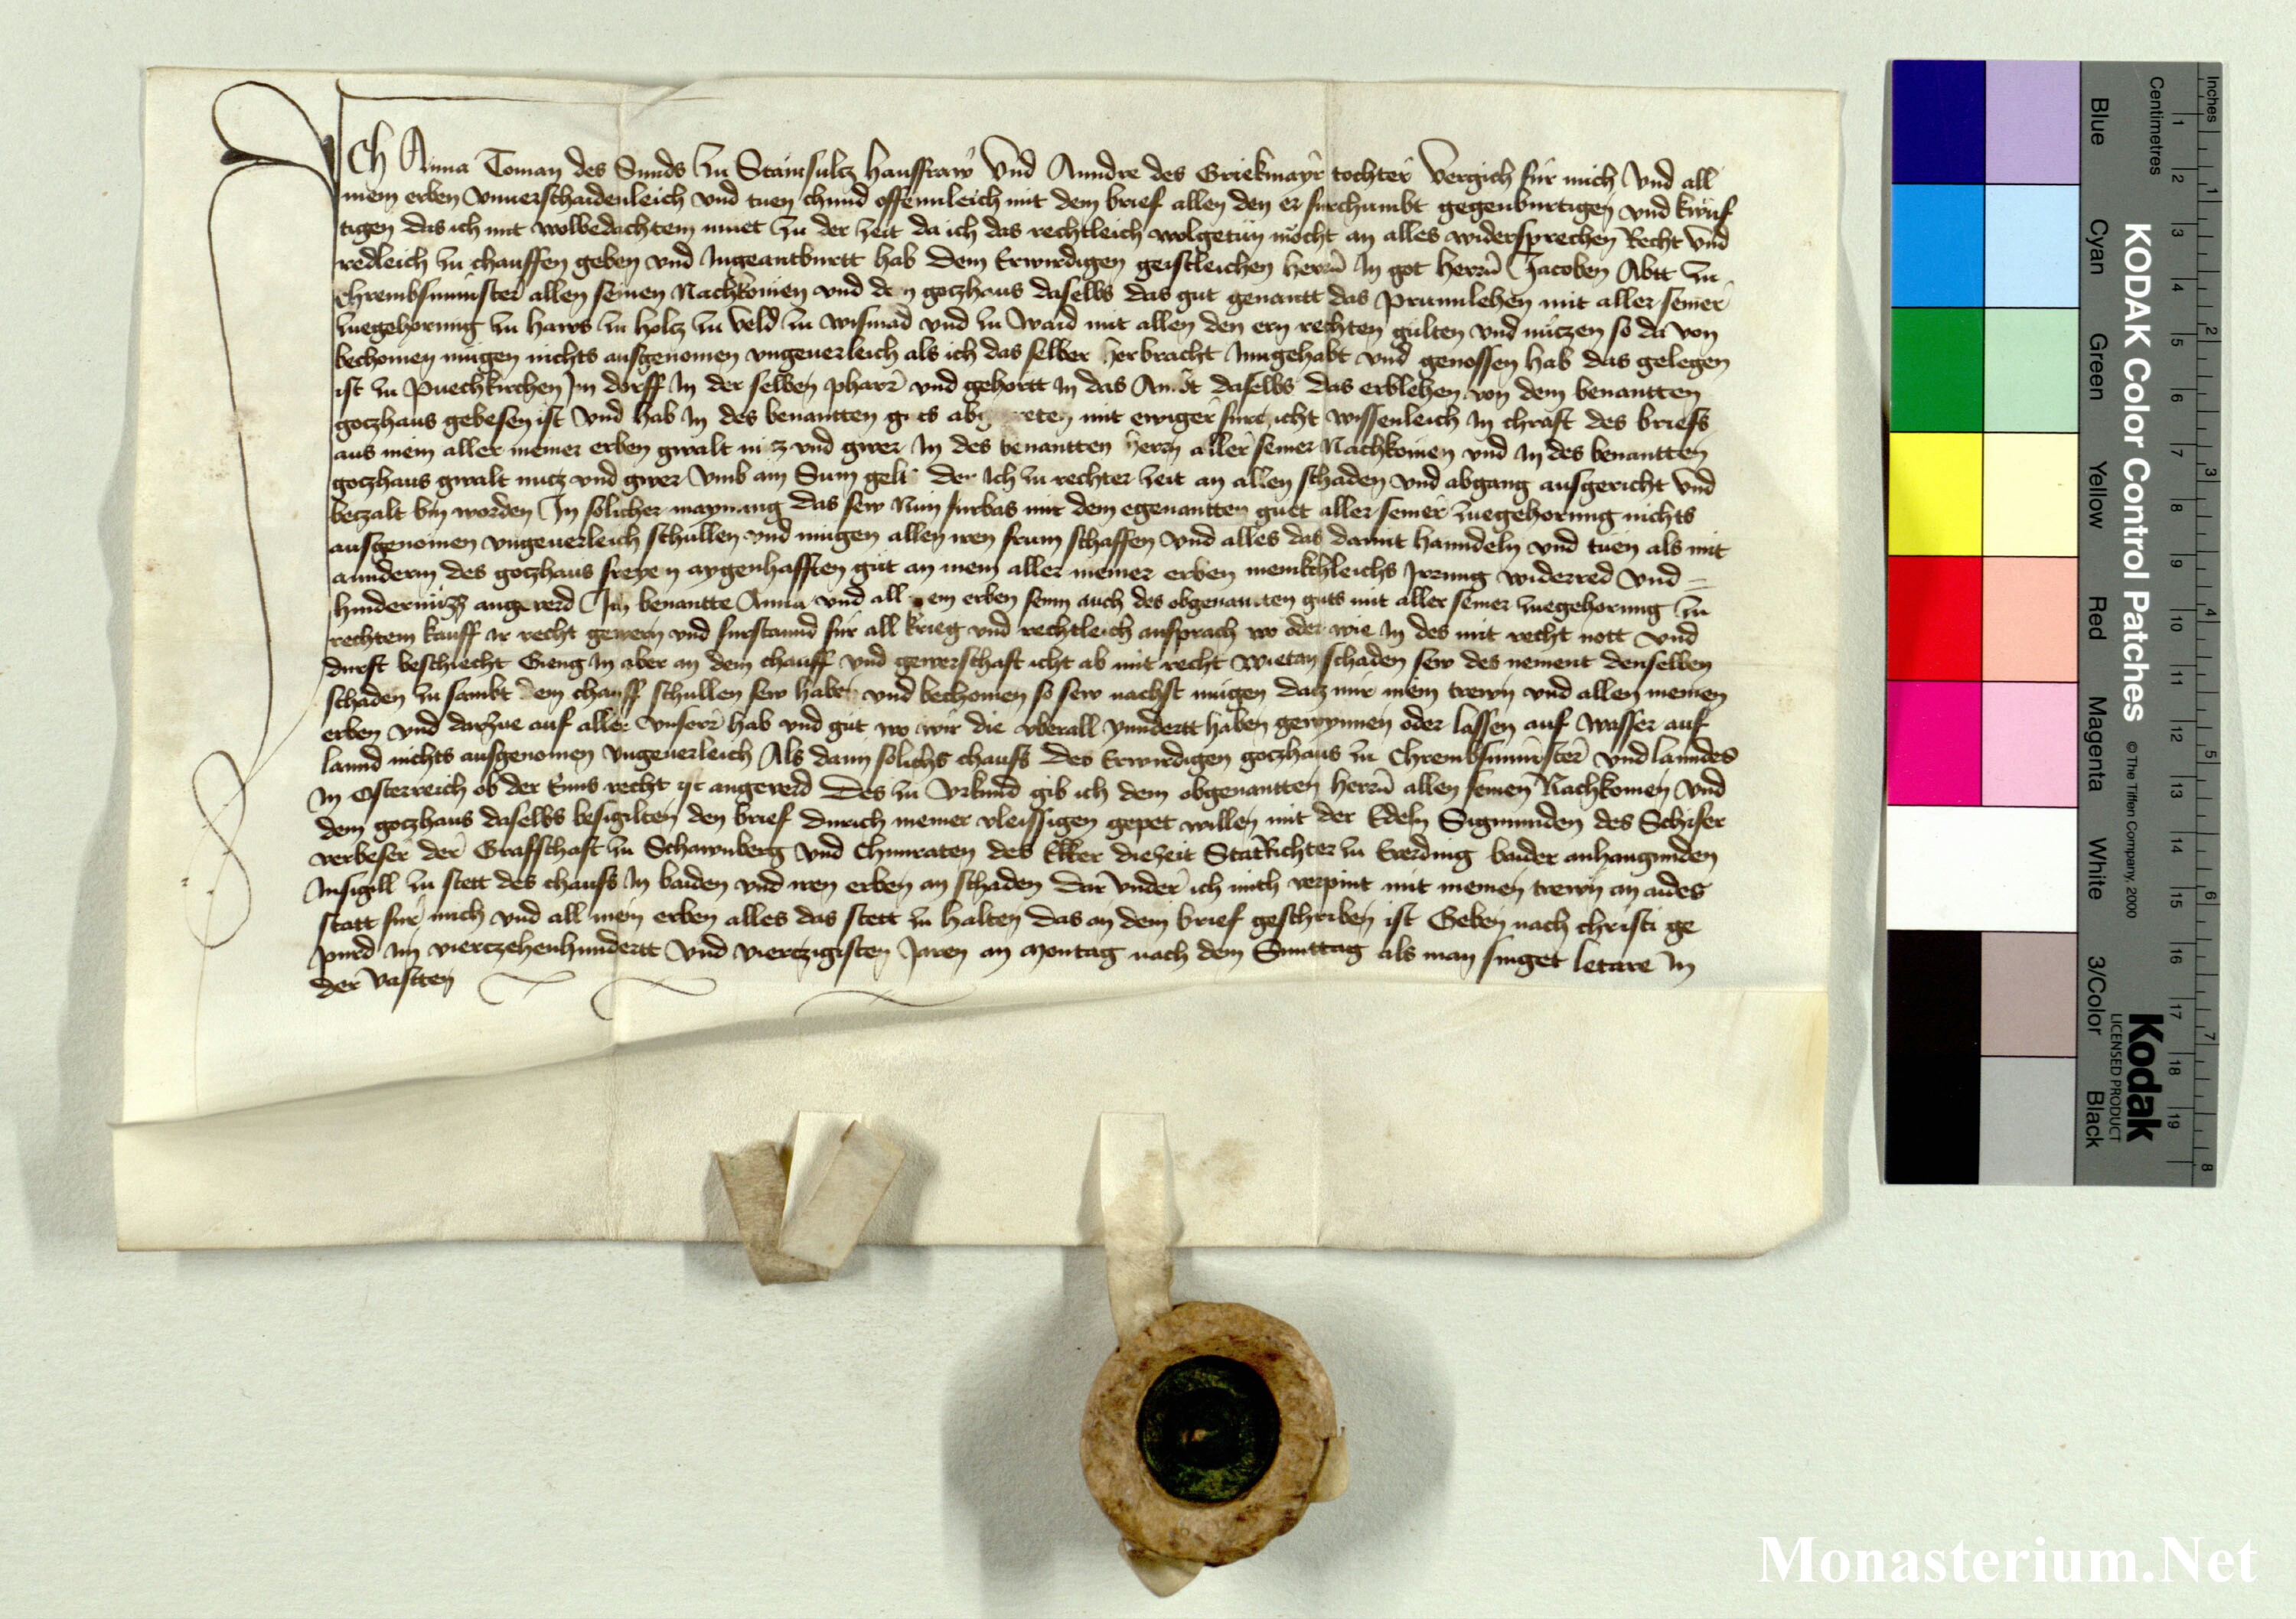 Ich Anna Toman des Sunds zu Stainsultz hausfraw Und Anndre des Griekmayr tochter Vergich für mich Und all
mein erben Unuerschaidenleich vnd tuen chund offennleich mit dem brief allen den er furchumbt gegenburtigen vnd künf
tigen das ich mit wolbedachtem muet zu der zeit da ich das rechtleich wolgetun mocht an alles widersprechen Recht vnd
redleich zu chauffen geben vnd Ingeantburtt hab dem Erwirdigen geistleichen herrn In got herrn Jacoben Abtt zu
Chrembsmunster allen seinen Nachkomen vnd dem goczhaus daselbs das gut genantt das Prunnlehen mit aller seiner
zuegehorung zu haws zu holcz zu veld zu wismad vnd zu waid mit allen den ern rechten gulten vnd nuczen so da von
bechomen mugen nichts ausgenomen vngeuerleich als ich das selber herbracht Inngehabt vnd genossen hab das gelegen
ist zu Puechkirchen Im dorff In der selben pharr vnd gehortt In das Ambt daselbs das erblehen von dem benantten
goczhaus gebesen ist Vnd hab In des benantten guts mit ewiger wissenleich In chraft des briefs
aus mein aller meiner erben gwalt nucz vnd gwer In des benantten herrn aller seiner Nachkomen vnd In des benantten
goczhaus gwalt nucz vnd gwer Vmb ain Sum gelts der Ich zu rechter zeit an allen schaden vnd abgang ausgericht Vnd
beczalt bin worden In solicher maynung das sew Nun furbas mit dem egenantten guet aller seiner zuegehorung nichts
ausgenomen vngeuerleich schullen vnd mugen allen iren frum schaffen Vnd alles das damit hanndeln vnd tuen als mit
anndern des goczhaus freyen aygenhafften gut an mein aller meiner erben menikchleichs Irrung widerred Vnd
hindernuzz angeuerd Ich benantte Anna vnd all mein erben seinn auch des obgenantten guts mit aller seiner zuegehorung zu
rechtem kauff ir recht gewern vnd furstannd fur all krieg vnd rechtleich ansprach wo oder wie In des mit recht nott Vnd
durft beschiecht Gieng In aber an dem chauff vnd gewerschaft icht ab mit recht Wietan schaden sew des nement denselben
schaden zu sambt dem chauff schullen sew haben vnd bechomen so sew nachst mugen dacz mir mein trewn vnd allen meinen
erben vnd darzue auf aller Vnserr hab vnd gut wo wir die vberall ynndertt haben gewynnen oder lassen auf Wasser auf
lannd nichts ausgenomen Vngeuerleich Als dann solichs chaufs des Erwirdigen goczhaus zu Chrembsmunster vnd lanndes
In Osterreich ob der Enns recht ist angeuerd Des zu Vrkund gib ich dem obgenantten herrn allen seinen Nachkomen Vnd
dem goczhaus daselbs besigilten den brief durich meiner vleissigen gepet willen mit der Edeln Sigmunden des Schifer
verbeser der Grafschaft zu Schawnberg Vnd Chunraten des Ekker diezeit StatRichter zu Everding baider anhangunden
Insigill zu stett des chaufs In baiden vnd iren erben an schaden Dar vnder ich mich verpint mit meinen trewn an aides
statt fur mich vnd all mein erben alles das stett zu halten das an dem brief geschriben ist Geben nach christi ge
purd Im vierczehenhundertt Vnd vierczigisten Jaren an Montag nach dem Sunttag als man singet letare In
der Vastten
KODAK Color Control Patches © The Tiffen Company, 2000
Kodak
LICENSED PRODUCT
Inches 1 2 3 4 5 6 7 8
Centimetres 1 2 3 4 5 6 7 8 9 10 11 12 13 14 15 16 17 18 19
Blue Cyan Green Yellow Red Magenta White 3/Color Black
Monasterium.Net